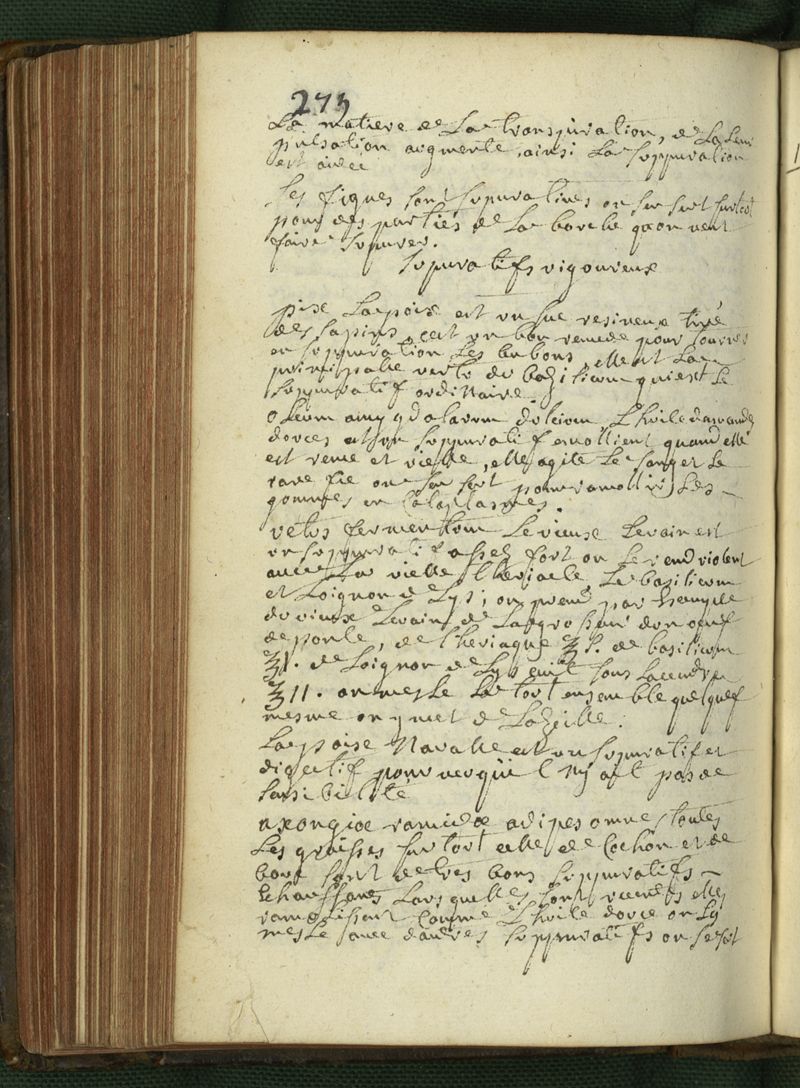 273
La matiere de La transpiration, de La
pulsation augmente, ainsi La suppuration
est aidee
Les figues sont supuratives on sen sert surtout
pour des parties de La bouche quon veut
faire supurer.
supuratifs vigoureux
pixe La poix est un suc resineux tiré
des sapins, cest un bon remede pour tourner
en suppuration Les bubons, elle est La
principalle vertu du basilicum qui est Le
suppuratif ordinaire.
oleum amygdalarum dulcium Lhuile damandes
douces est un suppuratif emollient quand elle
est vieille, elle agite Le sang et Le
rarefie on sen sert pour ramollir Les
gommes en Cataplasmes.
vetus fermentum Le vieux Levain est
un suppuratif asses fort on Le rend violent
avec La vielle theriacle, Le basilicum
et Loignon de Lys; on prend par Exemple
du vieux Levain de La grosseur dun oeuf
de poule, de theriaque ʒ de basilicum
ʒ1. de Loignon de Lys cuit sous La cendre
ʒ11. on mesle Le tout ensemble quelquef
mesme on y met de Lozeille.
La poix Navalle est un supuratif et
digestif pourveu quil ny ait pas de
sensibilité
axongiæ adipes omnes toutes
Les graisses surtout celle de Cochon et de
sont de tres bons suppuratifs
Echauffans Lors quelles sont elles
Comme Lhuile douce on Ly
mesle avec dautres suppuratifs on se sert